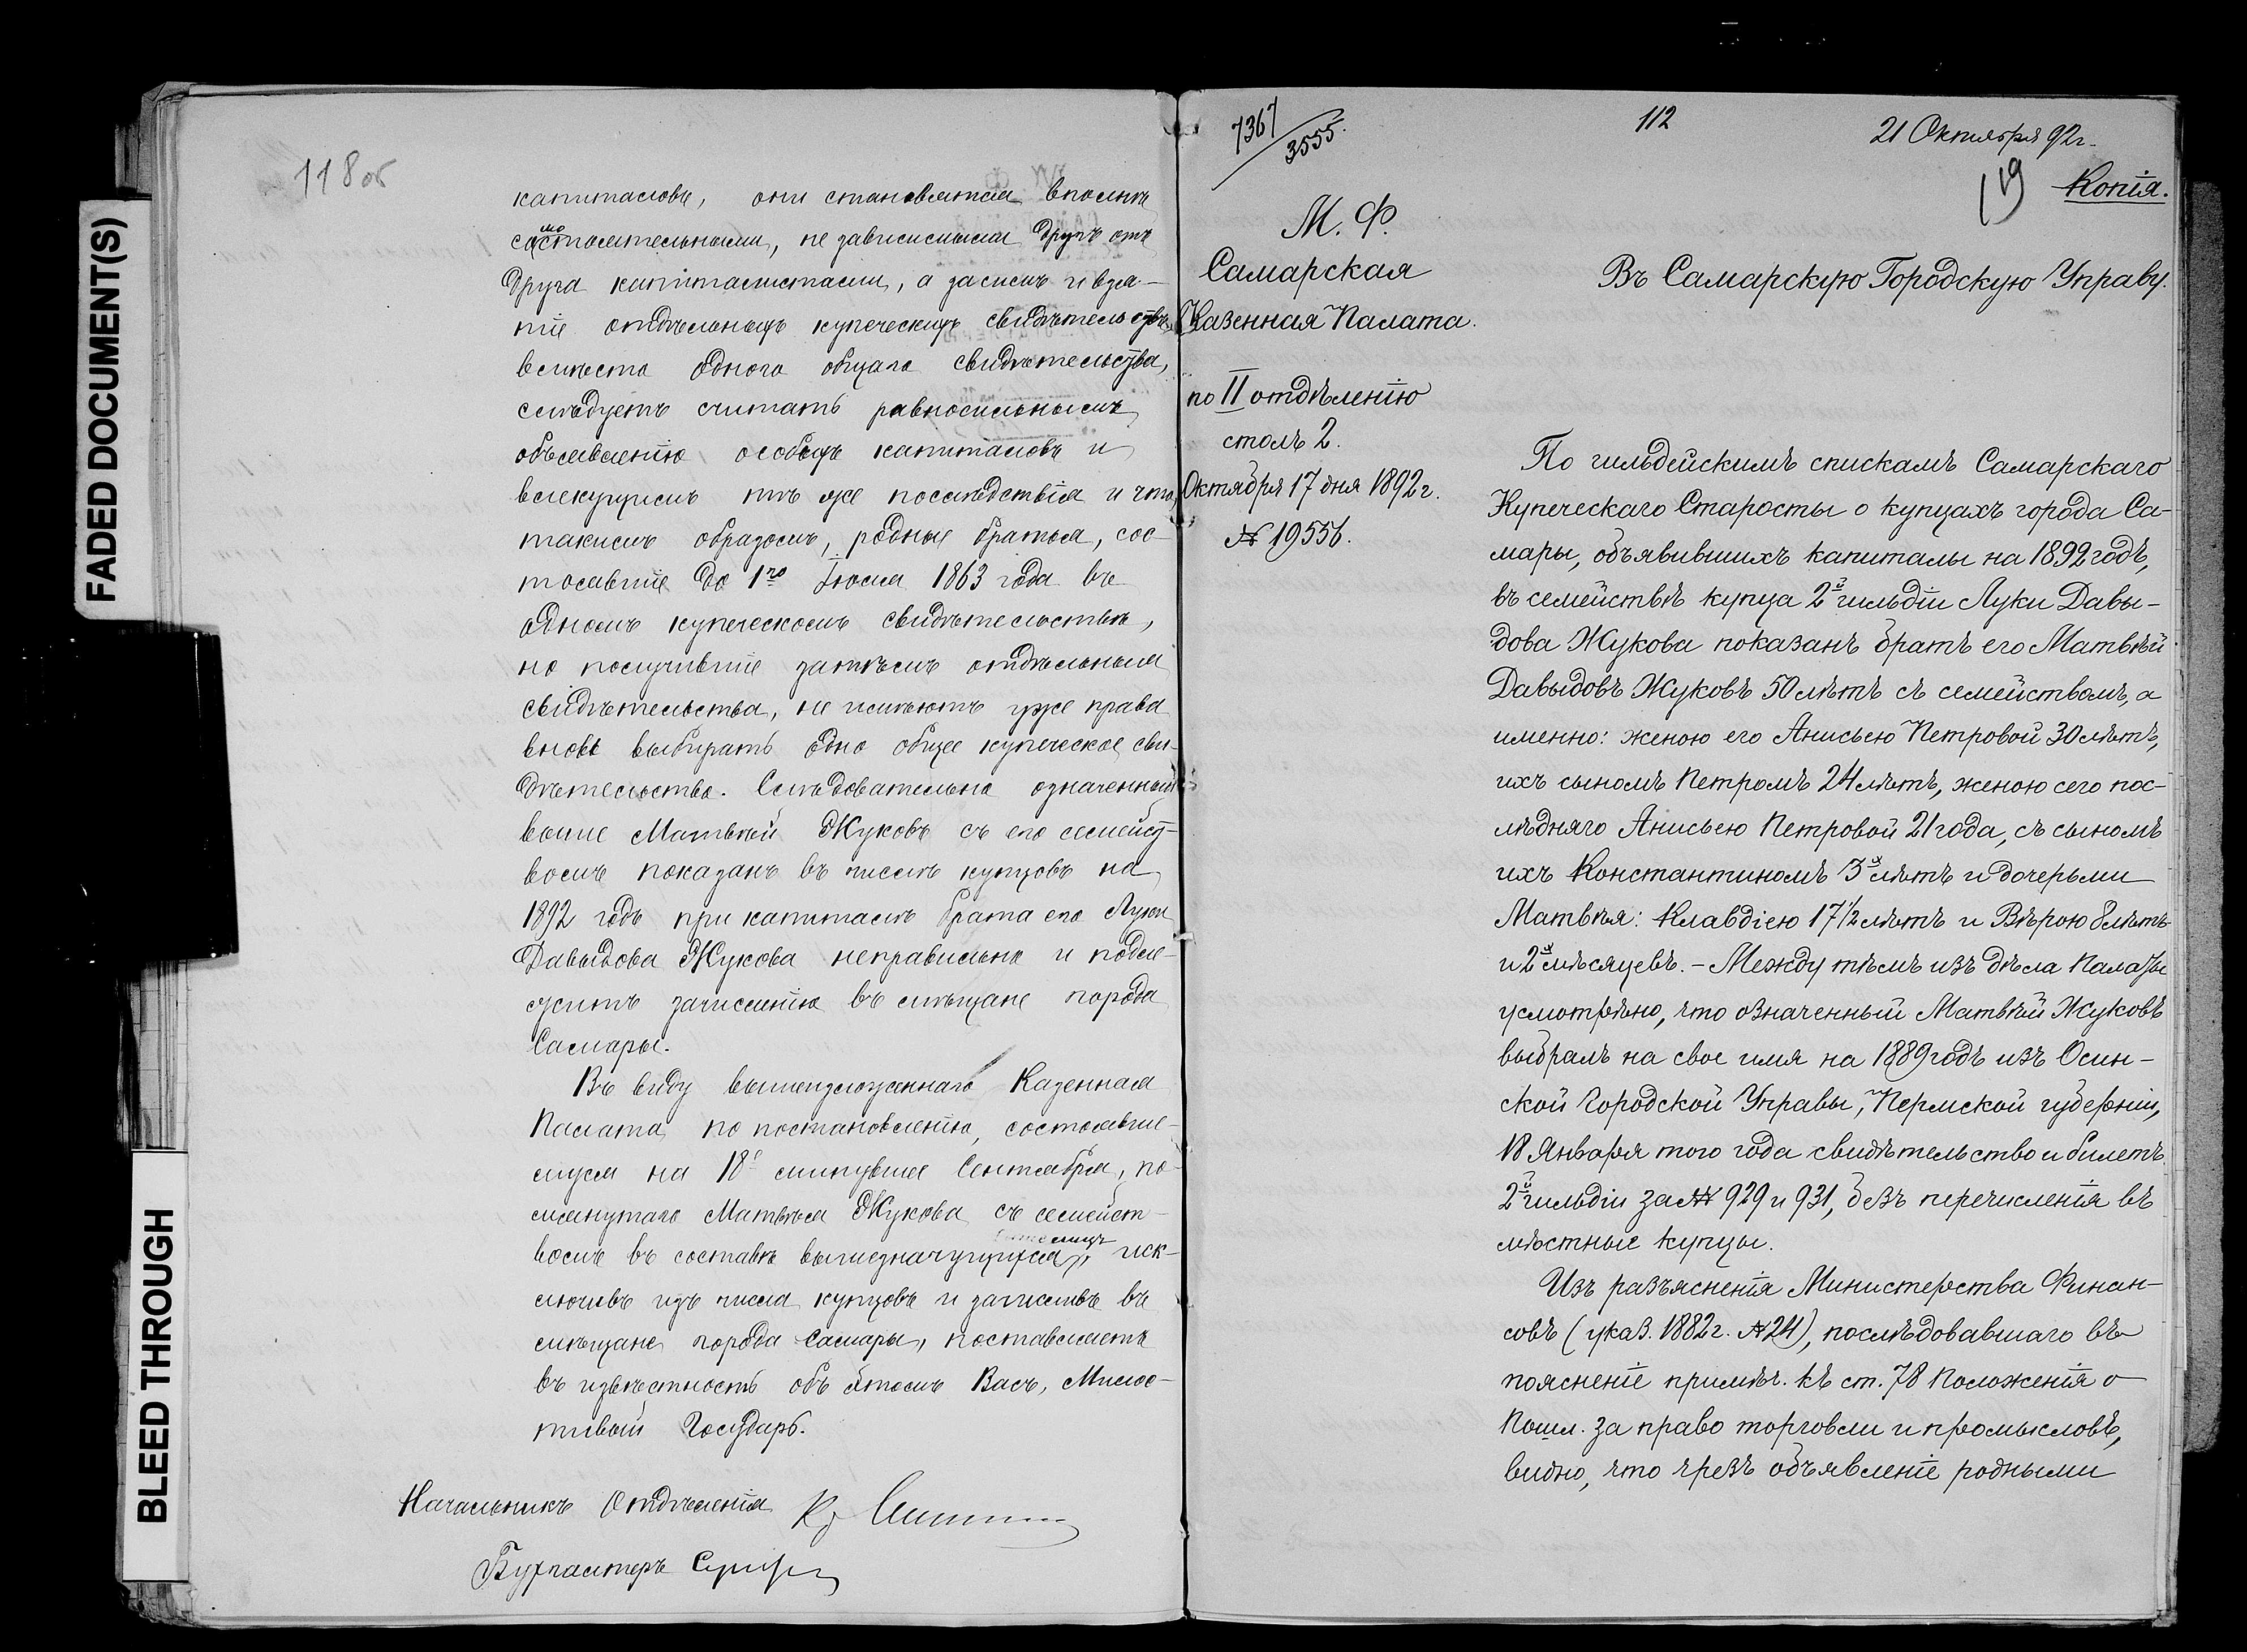 FADED DOCUMENT(S)
BLEED THROUGH
118 об
капиталовъ, они становятся вполнѣ
самостоятельными, не зависимыми другъ отъ
друга капиталистами, а засимъ и взя-
тіе отдѣльныхъ купеческихъ свидѣтельствъ,
вмѣсто одного общаго свидѣтельства,
слѣдуетъ считать равносильнымъ
объявленію особыхъ капиталовъ и
влекущимъ тѣ же послѣдствія и что,
такимъ образомъ, родные братья, сос-
тоявшіе до 1го Іюля 1863 года въ
одномъ купеческомъ свидѣтельствѣ,
но получившіе затѣмъ отдѣльныя
свидѣтельства, не имѣютъ уже права
вновь выбирать одно общее купеческое сви-
дѣтельство. Слѣдовательно означенный
выше Матвѣй Жуковъ съ его семейст-
вомъ показанъ въ числѣ купцовъ на
1892 годъ при капиталѣ брата его Луки
Давыдова Жукова неправильно и подле-
житъ зачисленію въ мѣщане города
Самары.
Въ виду вышеизложеннаго Казенная
Палата, по постановленію, состоявше-
муся на 18е минувшее Сентября, по-
мянутаго Матвѣя Жукова съ семейст-
вомъ въ составѣ вышезначущихся лицъ, иск-
лючивъ изъ числа купцовъ и зачисливъ въ
мѣщане города Самары, поставляетъ
въ извѣстность объ этомъ Васъ, Милос-
тивый Государь.
Начальникъ Отдѣленія
Бухгалтеръ
7367/3555.
112
21 Октября 92г.
119
Копія.
М. Ф.
Самарская
Казенная Палата.
по II отдѣленію
столъ 2.
Октября 17 дня 1892 г.
№ 19556.
Въ Самарскую Городскую Управу.
По гильдейскимъ спискамъ Самарскаго
Купеческаго Старосты о купцахъ города Са-
мары, объявившихъ капиталы на 1892 годъ,
въ семействѣ купца 2й гильдіи Луки Давы-
дова Жукова показанъ братъ его Матвѣй
Давыдовъ Жуковъ 50 лѣтъ съ семействомъ, а
именно: женою его Анисьею Петровой 30 лѣтъ,
ихъ сыномъ Петромъ 24 лѣтъ, женою сего пос-
лѣдняго Анисьею Петровой 21 года, съ сыномъ
ихъ Константиномъ 3х лѣтъ и дочерьми
Матвѣя: Клавдіею 17 1/2 лѣтъ и Вѣрою 8 лѣтъ
и 2х мѣсяцевъ. - Между тѣмъ изъ дѣла Палаты
усмотрѣно, что означенный Матвѣй Жуковъ
выбралъ на свое имя на 1889 годъ изъ Осин-
ской Городской Управы, Пермской губерніи,
18 Января того года свидѣтельство и билетъ
2й гильдіи за №№ 929 и 931, безъ перечисленія въ
мѣстные купцы.
Изъ разъясненія Министерства Финан-
совъ (указ. 1882 г. № 24), послѣдовавшаго въ
поясненіе примѣч. къ ст. 78 Положенія о
Пошл. за право торговли и промысловъ,
видно, что чрезъ объявленіе родными